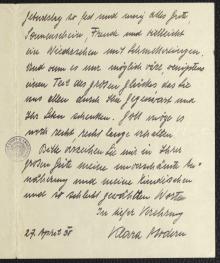 Geburtstag so fest und innig alles Gute,
Sonnenschein, Freude und vielleicht
ein Wiedersehen mit
Und wenn es nur möglich wäre, wenigstens
einen Teil des großen Glückes das Sie
uns allen durch Ihre Gegenwart und
Ihr schenken. Gott möge es
noch recht recht lange erhalten
Bitte verzeihen Sie mir in Ihrer
großen Güte meine unverschämte An-
näherung und meine kindischen
und so schlecht gewählten Worte
In tiefer Verehrung
27. April 38 Klara Modern